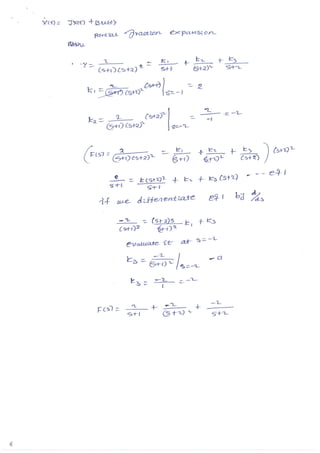 Ẏ(t) = Jx(t) + Bu(t)
Partial fraction expansion
F(s) = 2 / (s+1)(s+2)² = K₁ / (s+1) + K₂ / (s+2)² + K₃ / (s+2)
K₁ = 2 / (s+1)(s+2)² (s+1) | s=-1 = 2
K₂ = 2 / (s+1)(s+2)² (s+2)² | s=-2 = 2 / -1 = -2
(F(s) = 2 / (s+1)(s+2)² = K₁ / (s+1) + K₂ / (s+2)² + K₃ / (s+2)) (s+2)²
2 / (s+1) = K(s+2)² / (s+1) + K₂ + K₃(s+2) - - - eq 1
if we differentiate eq 1 by d/ds
-2 / (s+1)² = (s+2)s / (s+1)² K₁ + K₃
evaluate it at s=-2
K₃ = -2 / (s+1)² | s=-2
K₃ = -2 / 1 = -2
F(s) = 2 / (s+1) + -2 / (s+2)² + -2 / (s+2)